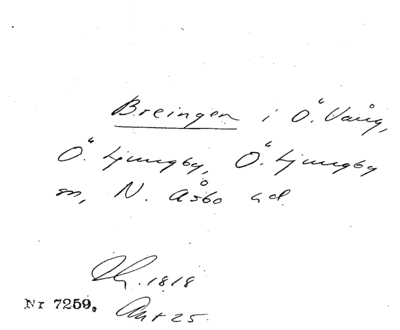 Breingen i Ö. Vång,
Ö. Ljungby, Ö. Ljungby
sn, N. Åsbo hd.
1818
Nr 7259. Akt 25.